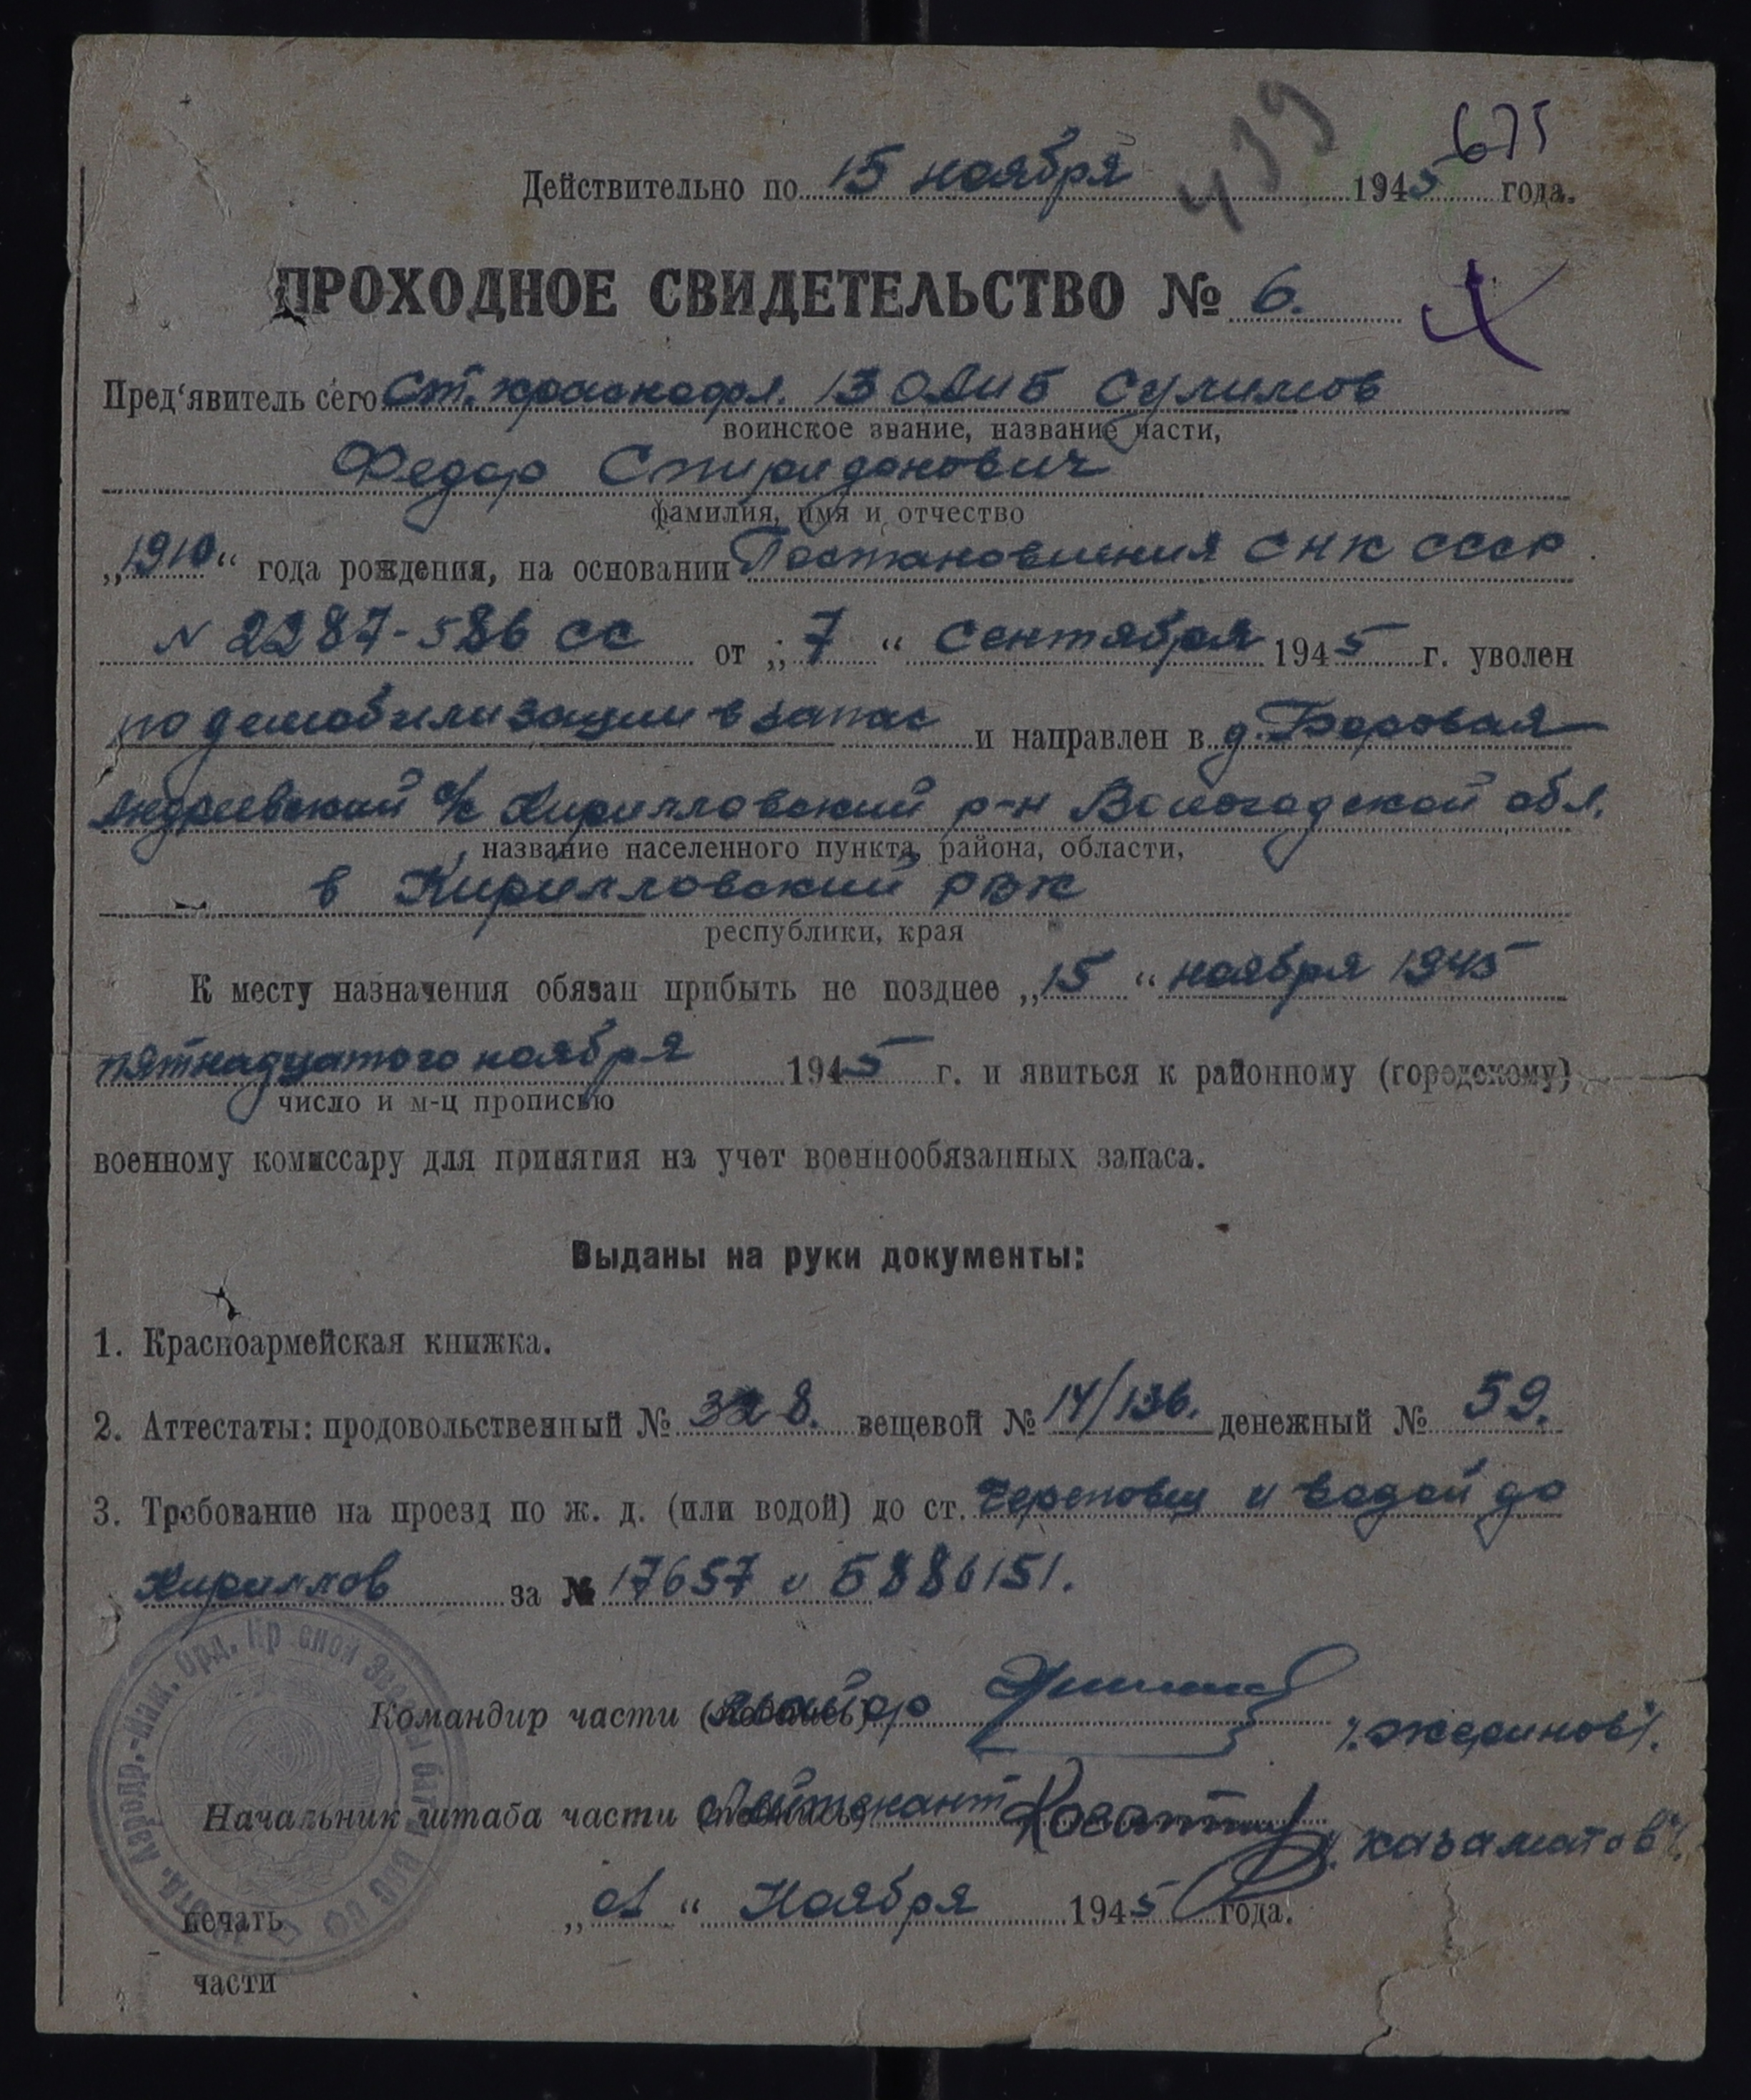 675
439
Действительно по 15 ноября 1945 года.
ПРОХОДНОЕ СВИДЕТЕЛЬСТВО № 6.
Пред‘явитель сего ст. краснофл. 13 ОАИБ Сулимов
воинское звание, название части,
Федор Спиридонович
фамилия, имя и отчество
„1910“ года рождения, на основании Постановления СНК СССР
N 2287-586 сс от „7“ сентября 1945 г. уволен
по демобилизации в запас и направлен в д. Боровая
Андреевский с/с Кирилловский р-н Вологодской обл.
название населенного пункта, района, области,
в Кирилловский РВК
республики, края
К месту назначения обязан прибыть не позднее „15“ ноября 1945
пятнадцатого ноября 1945 г. и явиться к районному (городскому)
число и м-ц прописью
военному комиссару для принятия на учет военнообязанных запаса.
Выданы на руки документы:
1. Красноармейская книжка.
2. Аттестаты: продовольственный № 328. вещевой № 14/136. денежный № 59.
3. Требование на проезд по ж. д. (или водой) до ст. Череповец и водой до
Кириллов за № 17657 и 5886151.
Командир части майор /. Жеринов /.
Начальник штаба части Лейтенант /. Казаматов /.
печать „01“ Ноября 1945 года.
части
Орд. Красной Звезды